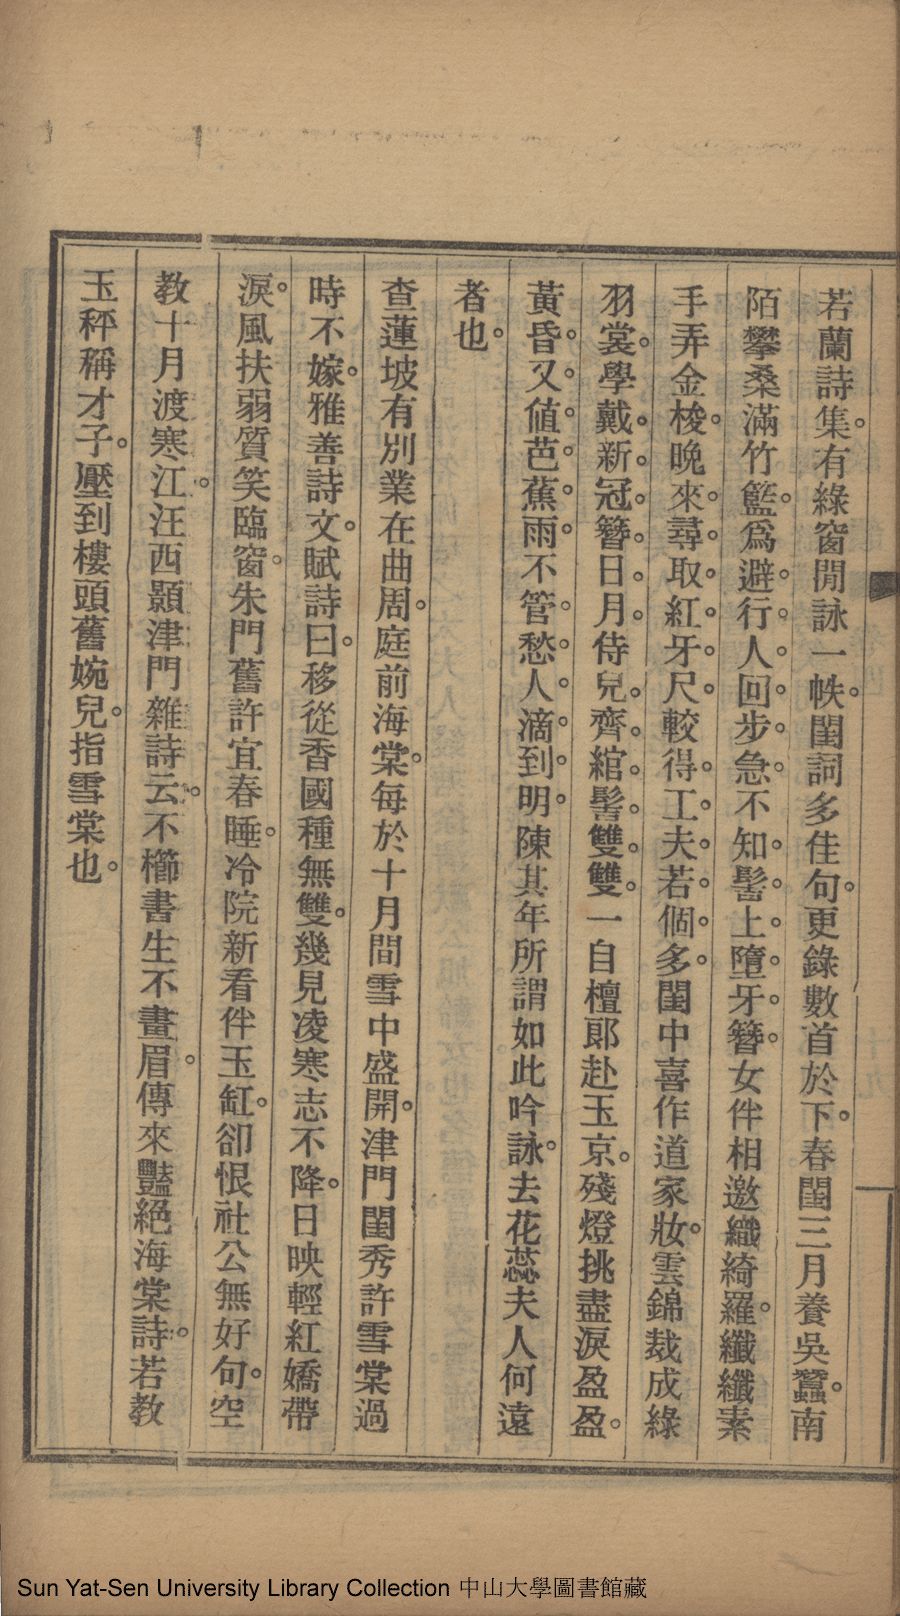 若蘭詩集。有綠窗閒詠一帙。閨詞多佳句。更錄數首於下。春閨三月養吳蠶。南
陌攀桑滿竹籃。爲避。行。人。回。步。急。不知。髻。上。墮。牙。簪。女伴相邀織綺羅。纖纖素
手弄金梭。晚來。尋。取。紅。牙。尺。較得。工。夫。若。個。多。閨中喜作道家妝。雲錦裁成綠
羽裳。學戴。新。冠。簪。日。月。侍兒。齊。綰。髻。雙。雙。一自檀郞赴玉京。殘燈挑盡淚盈盈。
黃昏。又。値。芭。蕉。雨。不管。愁。人。滴。到。明。陳其年所謂如此吟詠。去花蕊夫人何遠
者也。
查蓮坡有別業在曲周。庭前海棠。每於十月間雪中盛開。津門閨秀許雪棠過
時不嫁。雅善詩文。賦詩曰。移從香國種無雙。幾見凌寒志不降。日映輕紅嬌帶
淚。風扶弱質笑臨窗。朱門舊許宜春睡。冷院新看伴玉缸。卻恨社公無好句。空
教十月渡寒江。汪西顥津門雜詩云。不櫛書生不畫眉。傳來豔絕海棠詩。若教
玉秤稱才子。壓到樓頭舊婉兒。指雪棠也。
Sun Yat-Sen University Library Collection 中山大學圖書館藏